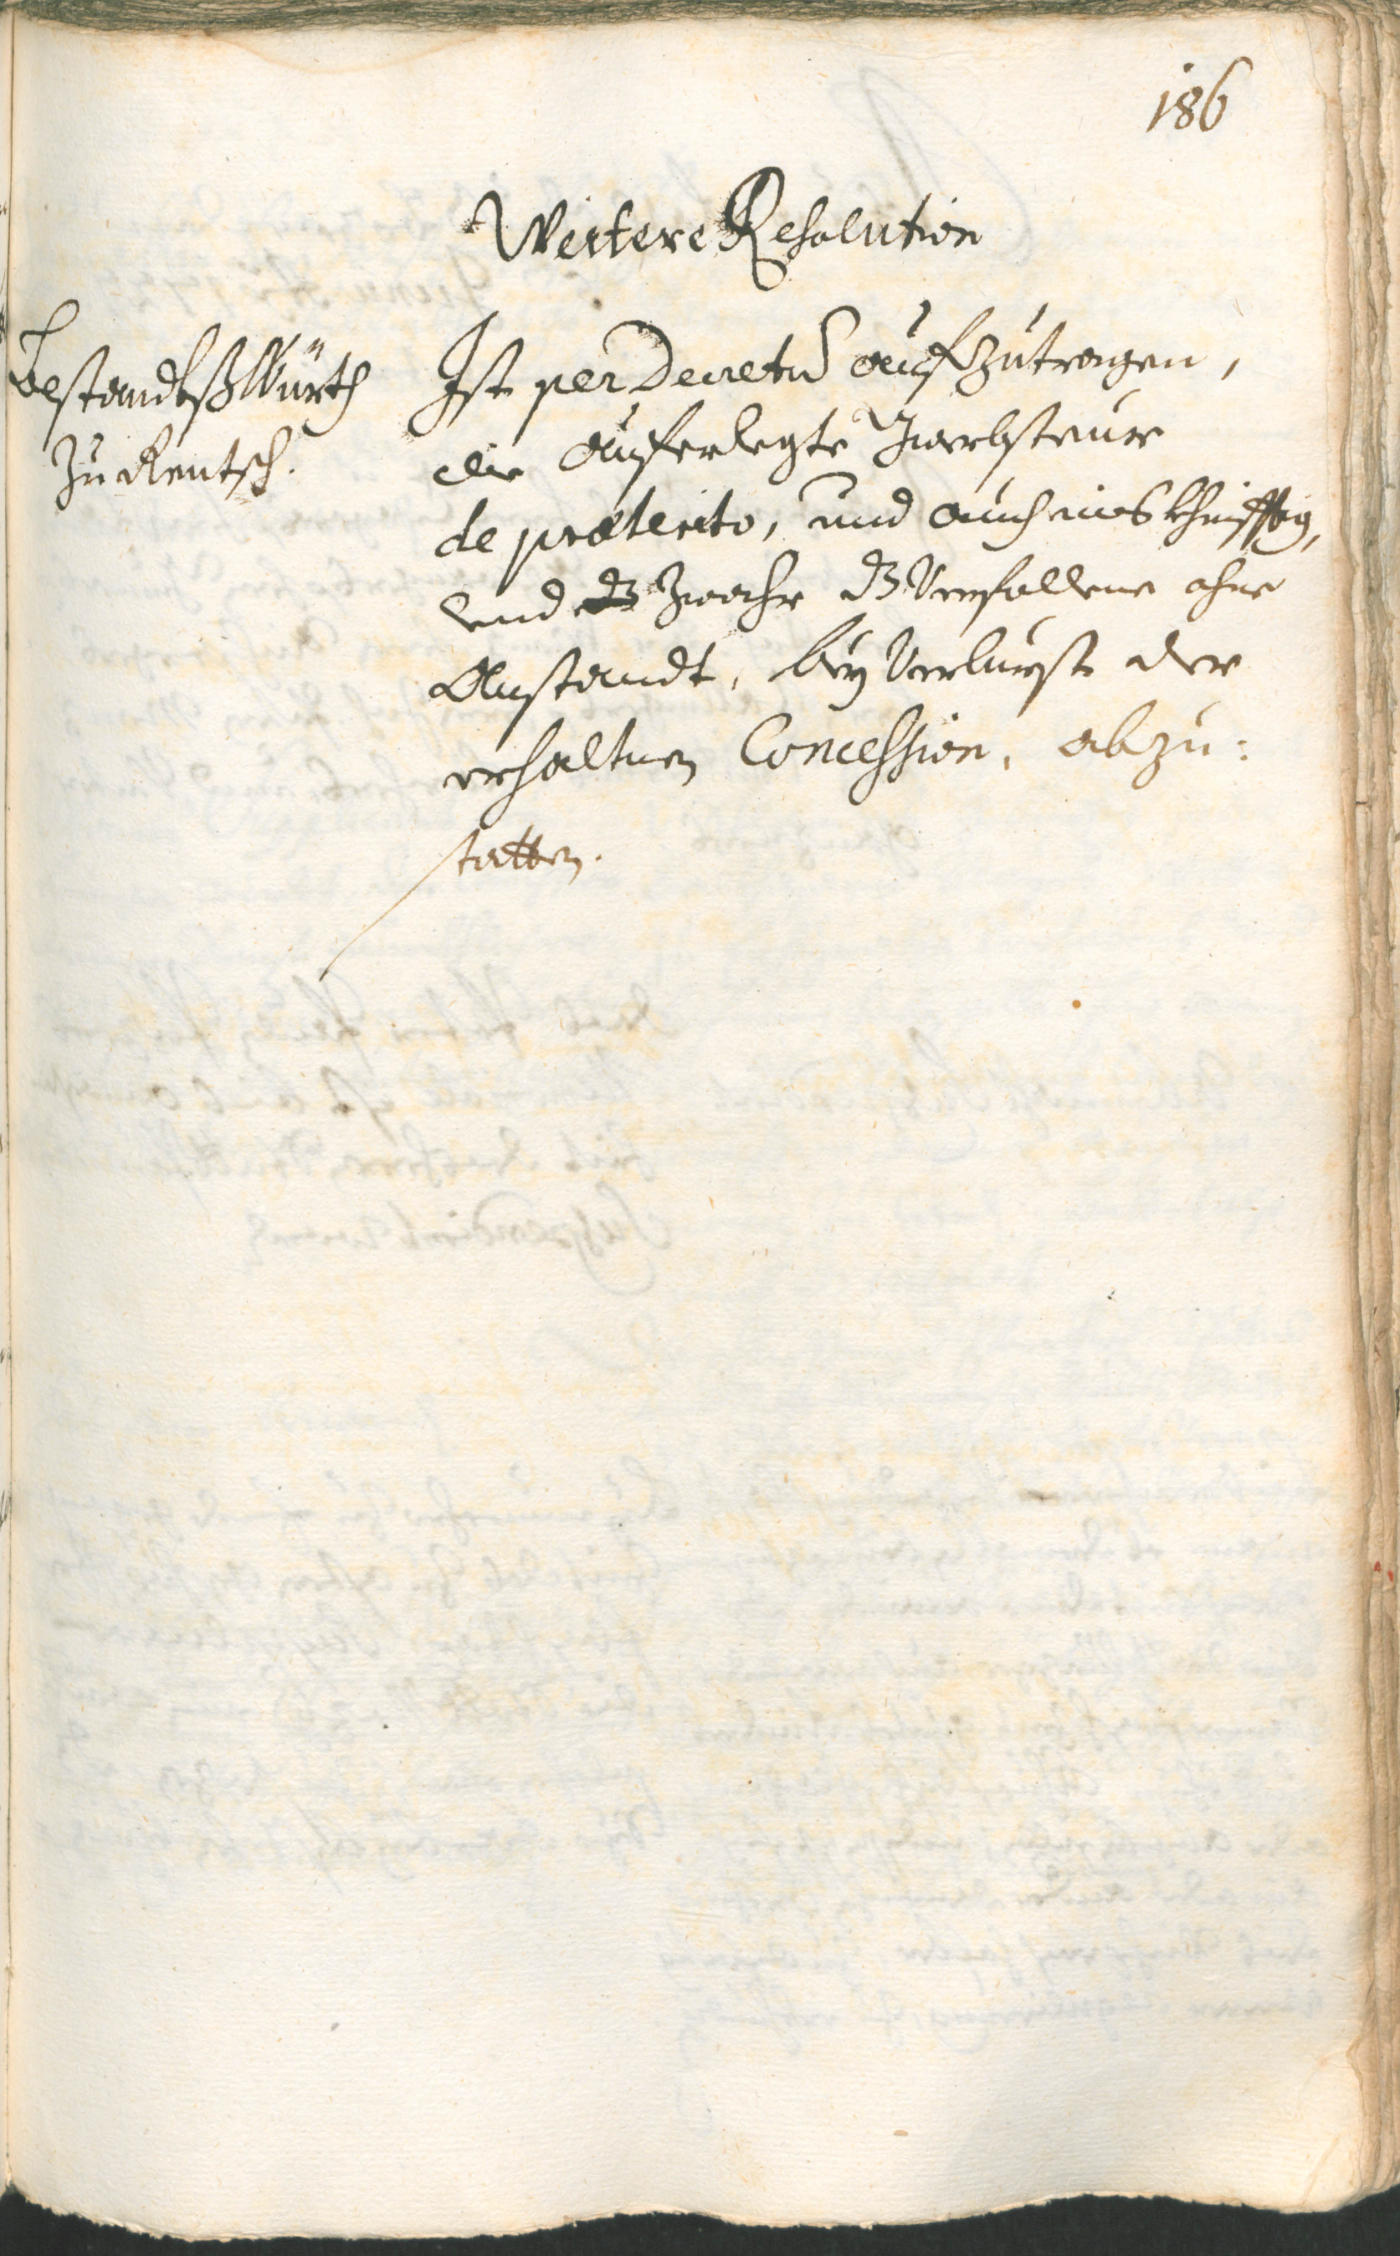 186
Weitere Resolution
Bestandtß Würth
zu Rentsch.
Ist per Decretũ aufzutragen,
die auferlegte Gwerbsteur
de præterito, und auch ins khünfftig,
und zwahr dz Verfallene ohne
Anstandt, bey Verlurst der
erhaltnen Concession, abzu:
statten.